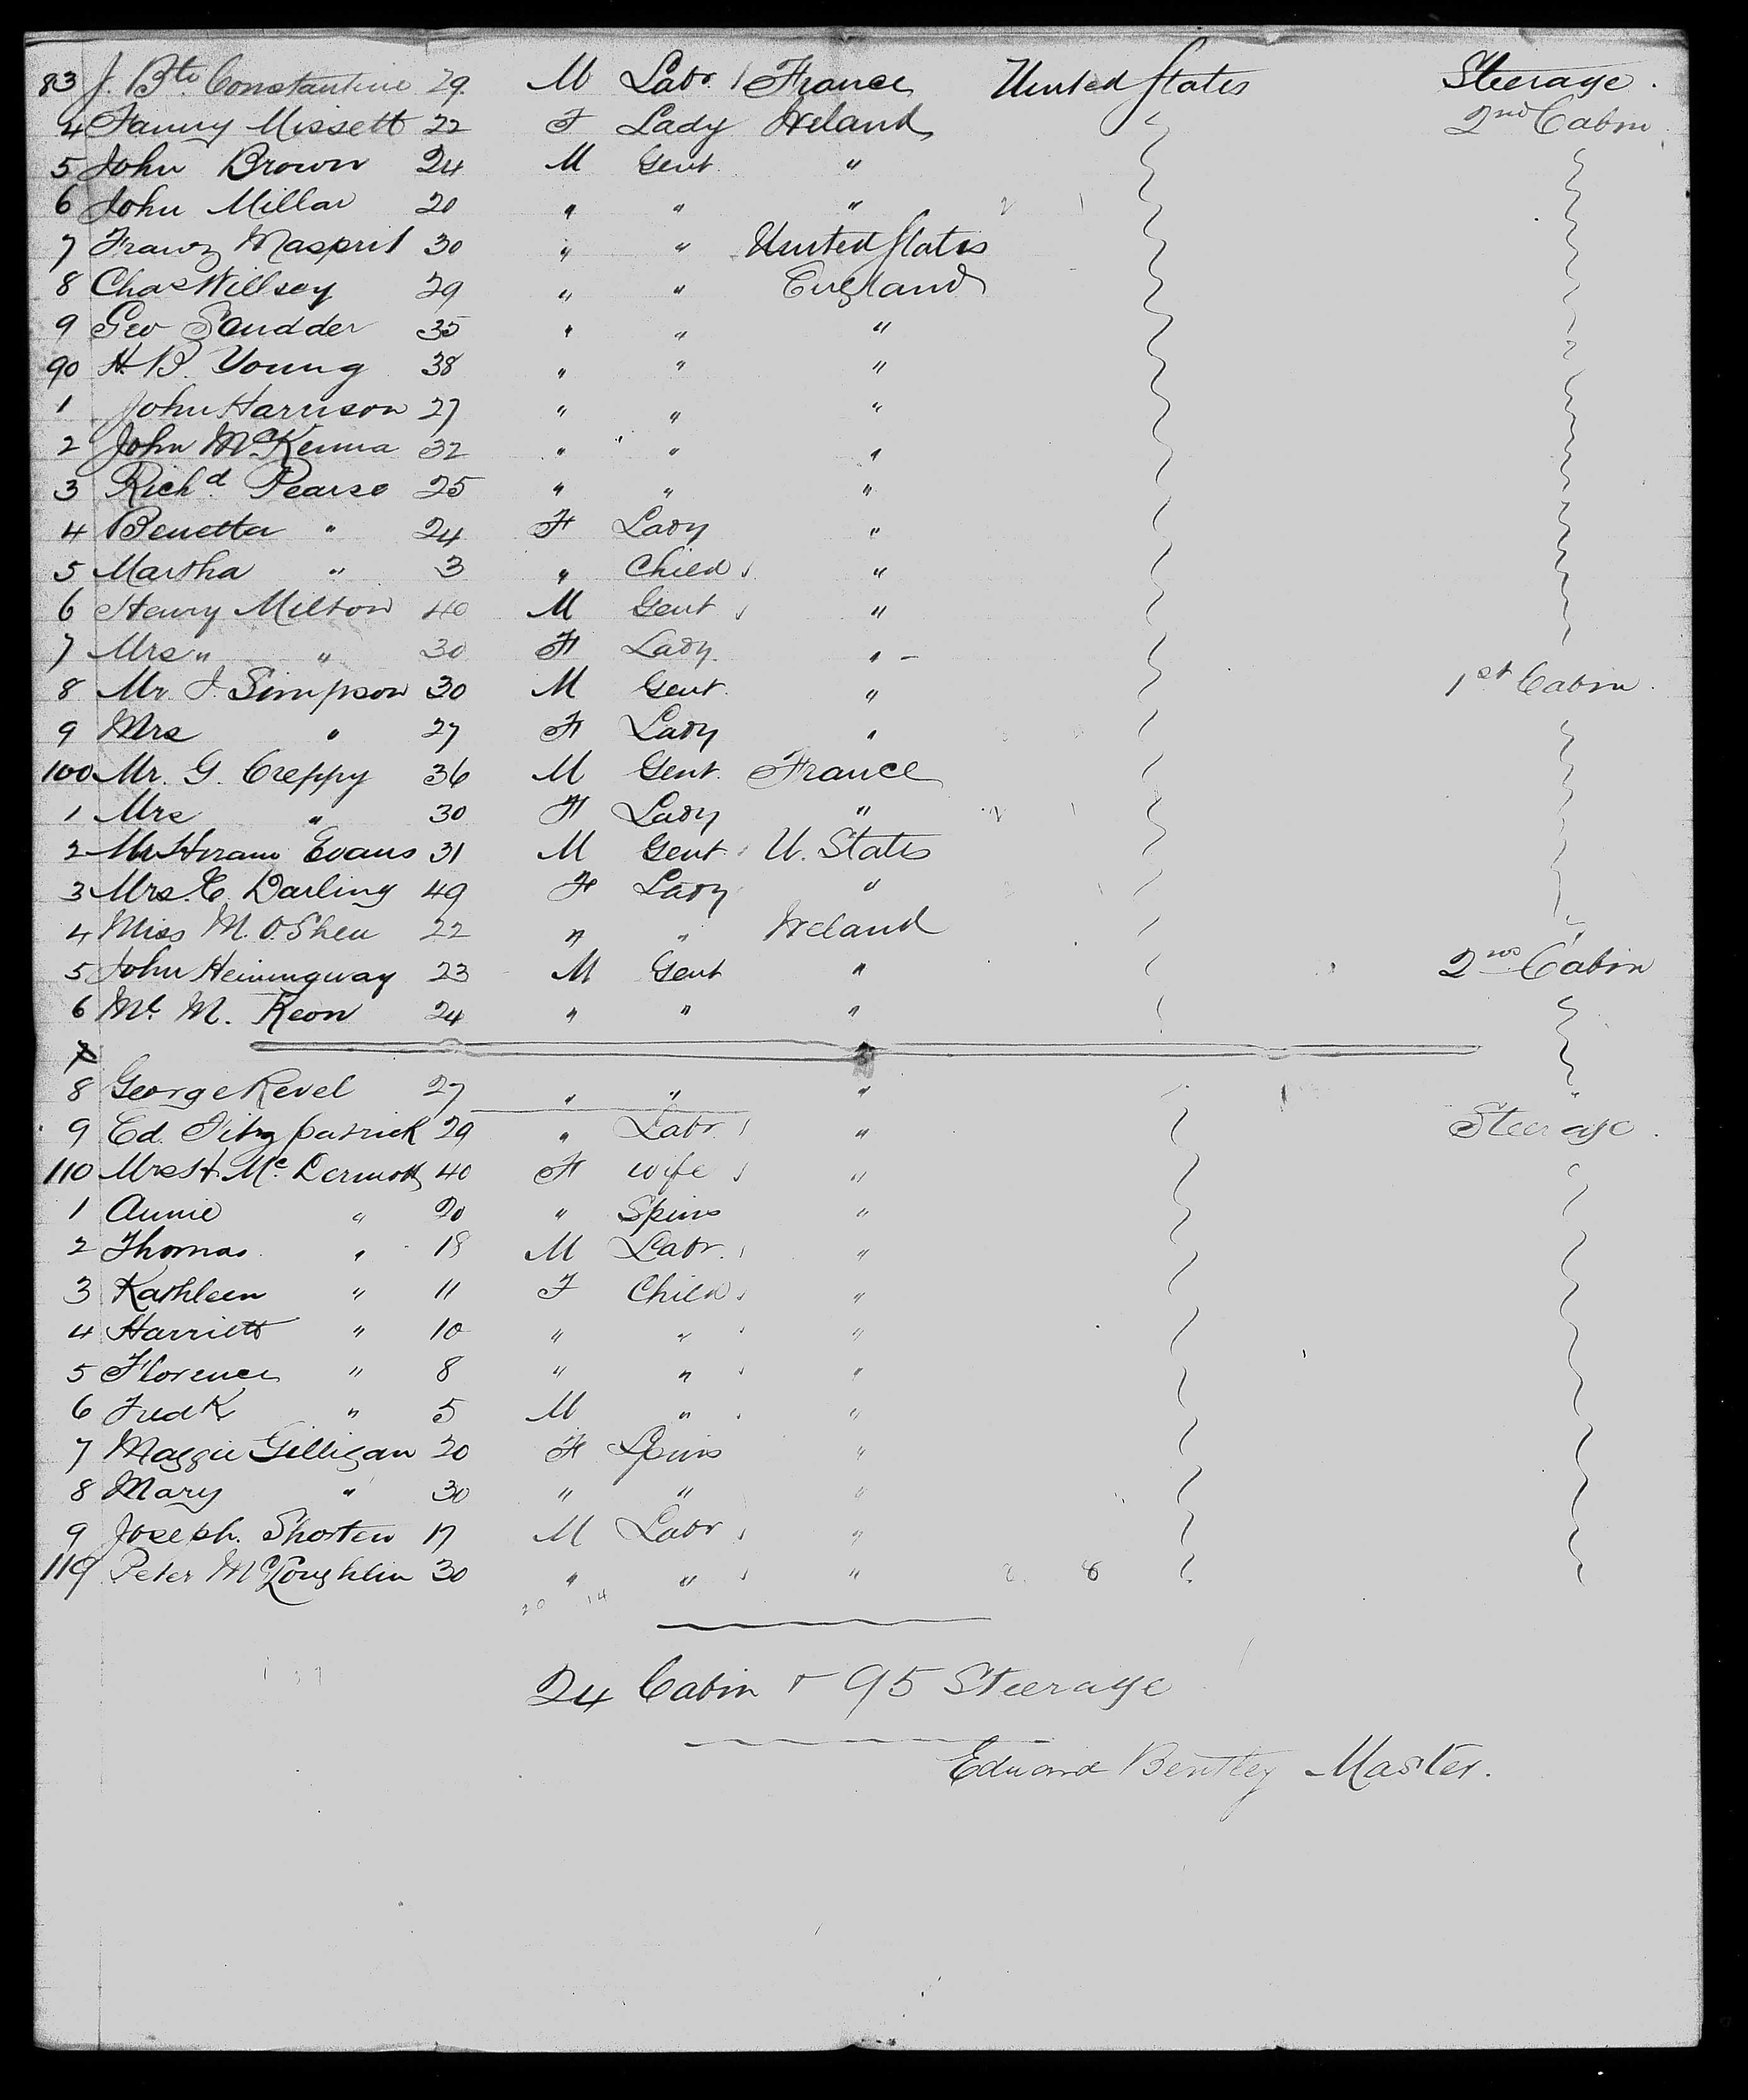 83 J. Bte Constantine 29 M Labr. France United States Steerage.
4 Fanny Missett 22 F Lady Ireland 2nd Cabin
5 John Brown 24 M Gent. "
6 John Millar 20 " " "
7 Franz 30 " " United States
8 Chas Willsey 29 " " England
9 Geo Scudder 35 " " "
90 H. B. Young 38 " " "
1 John Harrison 27 " " "
2 John McKenna 32 " " "
3 Richd. Pearse 25 " " "
4 Benetta " 24 F Lady "
5 Martha " 3 " Child "
6 Henry Milton 40 M Gent "
7 Mrs " " 30 F Lady. " -
8 Mr. J. Simpson 30 M Gent. " 1st Cabin.
9 Mrs " 27 F Lady "
100 Mr. G. Creppy 36 M Gent. France
1 Mrs " 30 F Lady "
2 Mr Hiram Evans 31 M Gent. U. States
3 Mrs. C. Darling 49 F Lady "
4 Miss M. O.Shea 22 " " Ireland
5 John Hemingway 23 M Gent " 2nd Cabin
6 Mc. M. Keon 24 " " "
7
8 George Revel 27 " " "
9 Ed. Fitzpatrick 29 " Labr. " Steerage.
110 Mrs H. Mc Dermott 40 F wife "
1 Annie " 20 " Spins "
2 Thomas " 18 M Labr. "
3 Kathleen " 11 F Child "
4 Harriett " 10 " " "
5 Florence " 8 " " "
6 Fredk " 5 M " "
7 Maggie Gilligan 20 F Spins "
8 Mary " 30 " " "
9 Joseph. Shorten 17 M Labr "
119 Peter McLoughlin 30 " " " 8
20 14
24 Cabin & 95 Steerage
Edward Bentley Master.